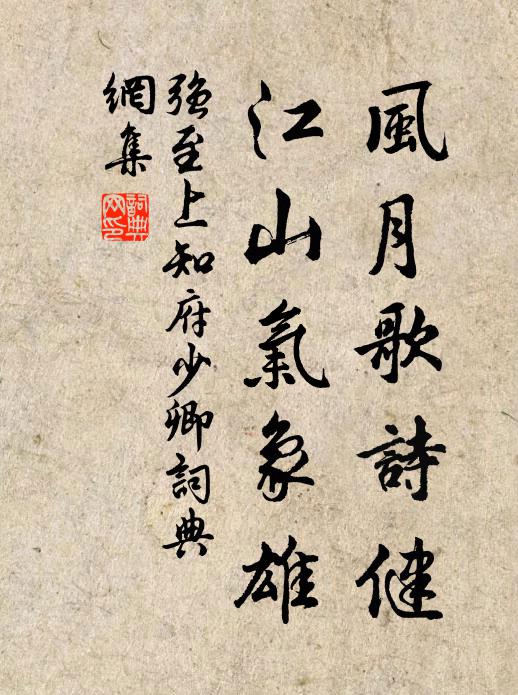 風月歌詩健
江山氣象雄
強至上知府少卿詞典
網集
詞典網印